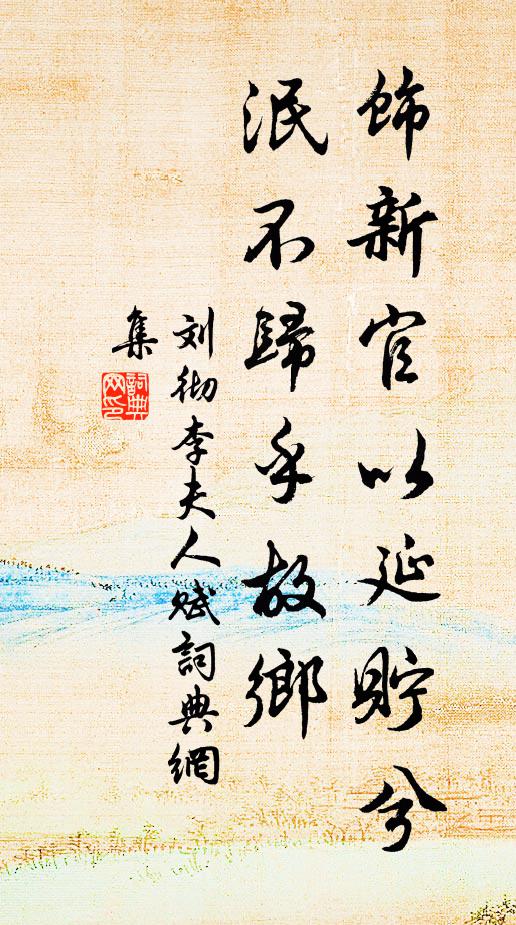 飾新官以延貯兮
泯不歸乎故鄉
刘彻李夫人賦詞典網
集
詞典
网印